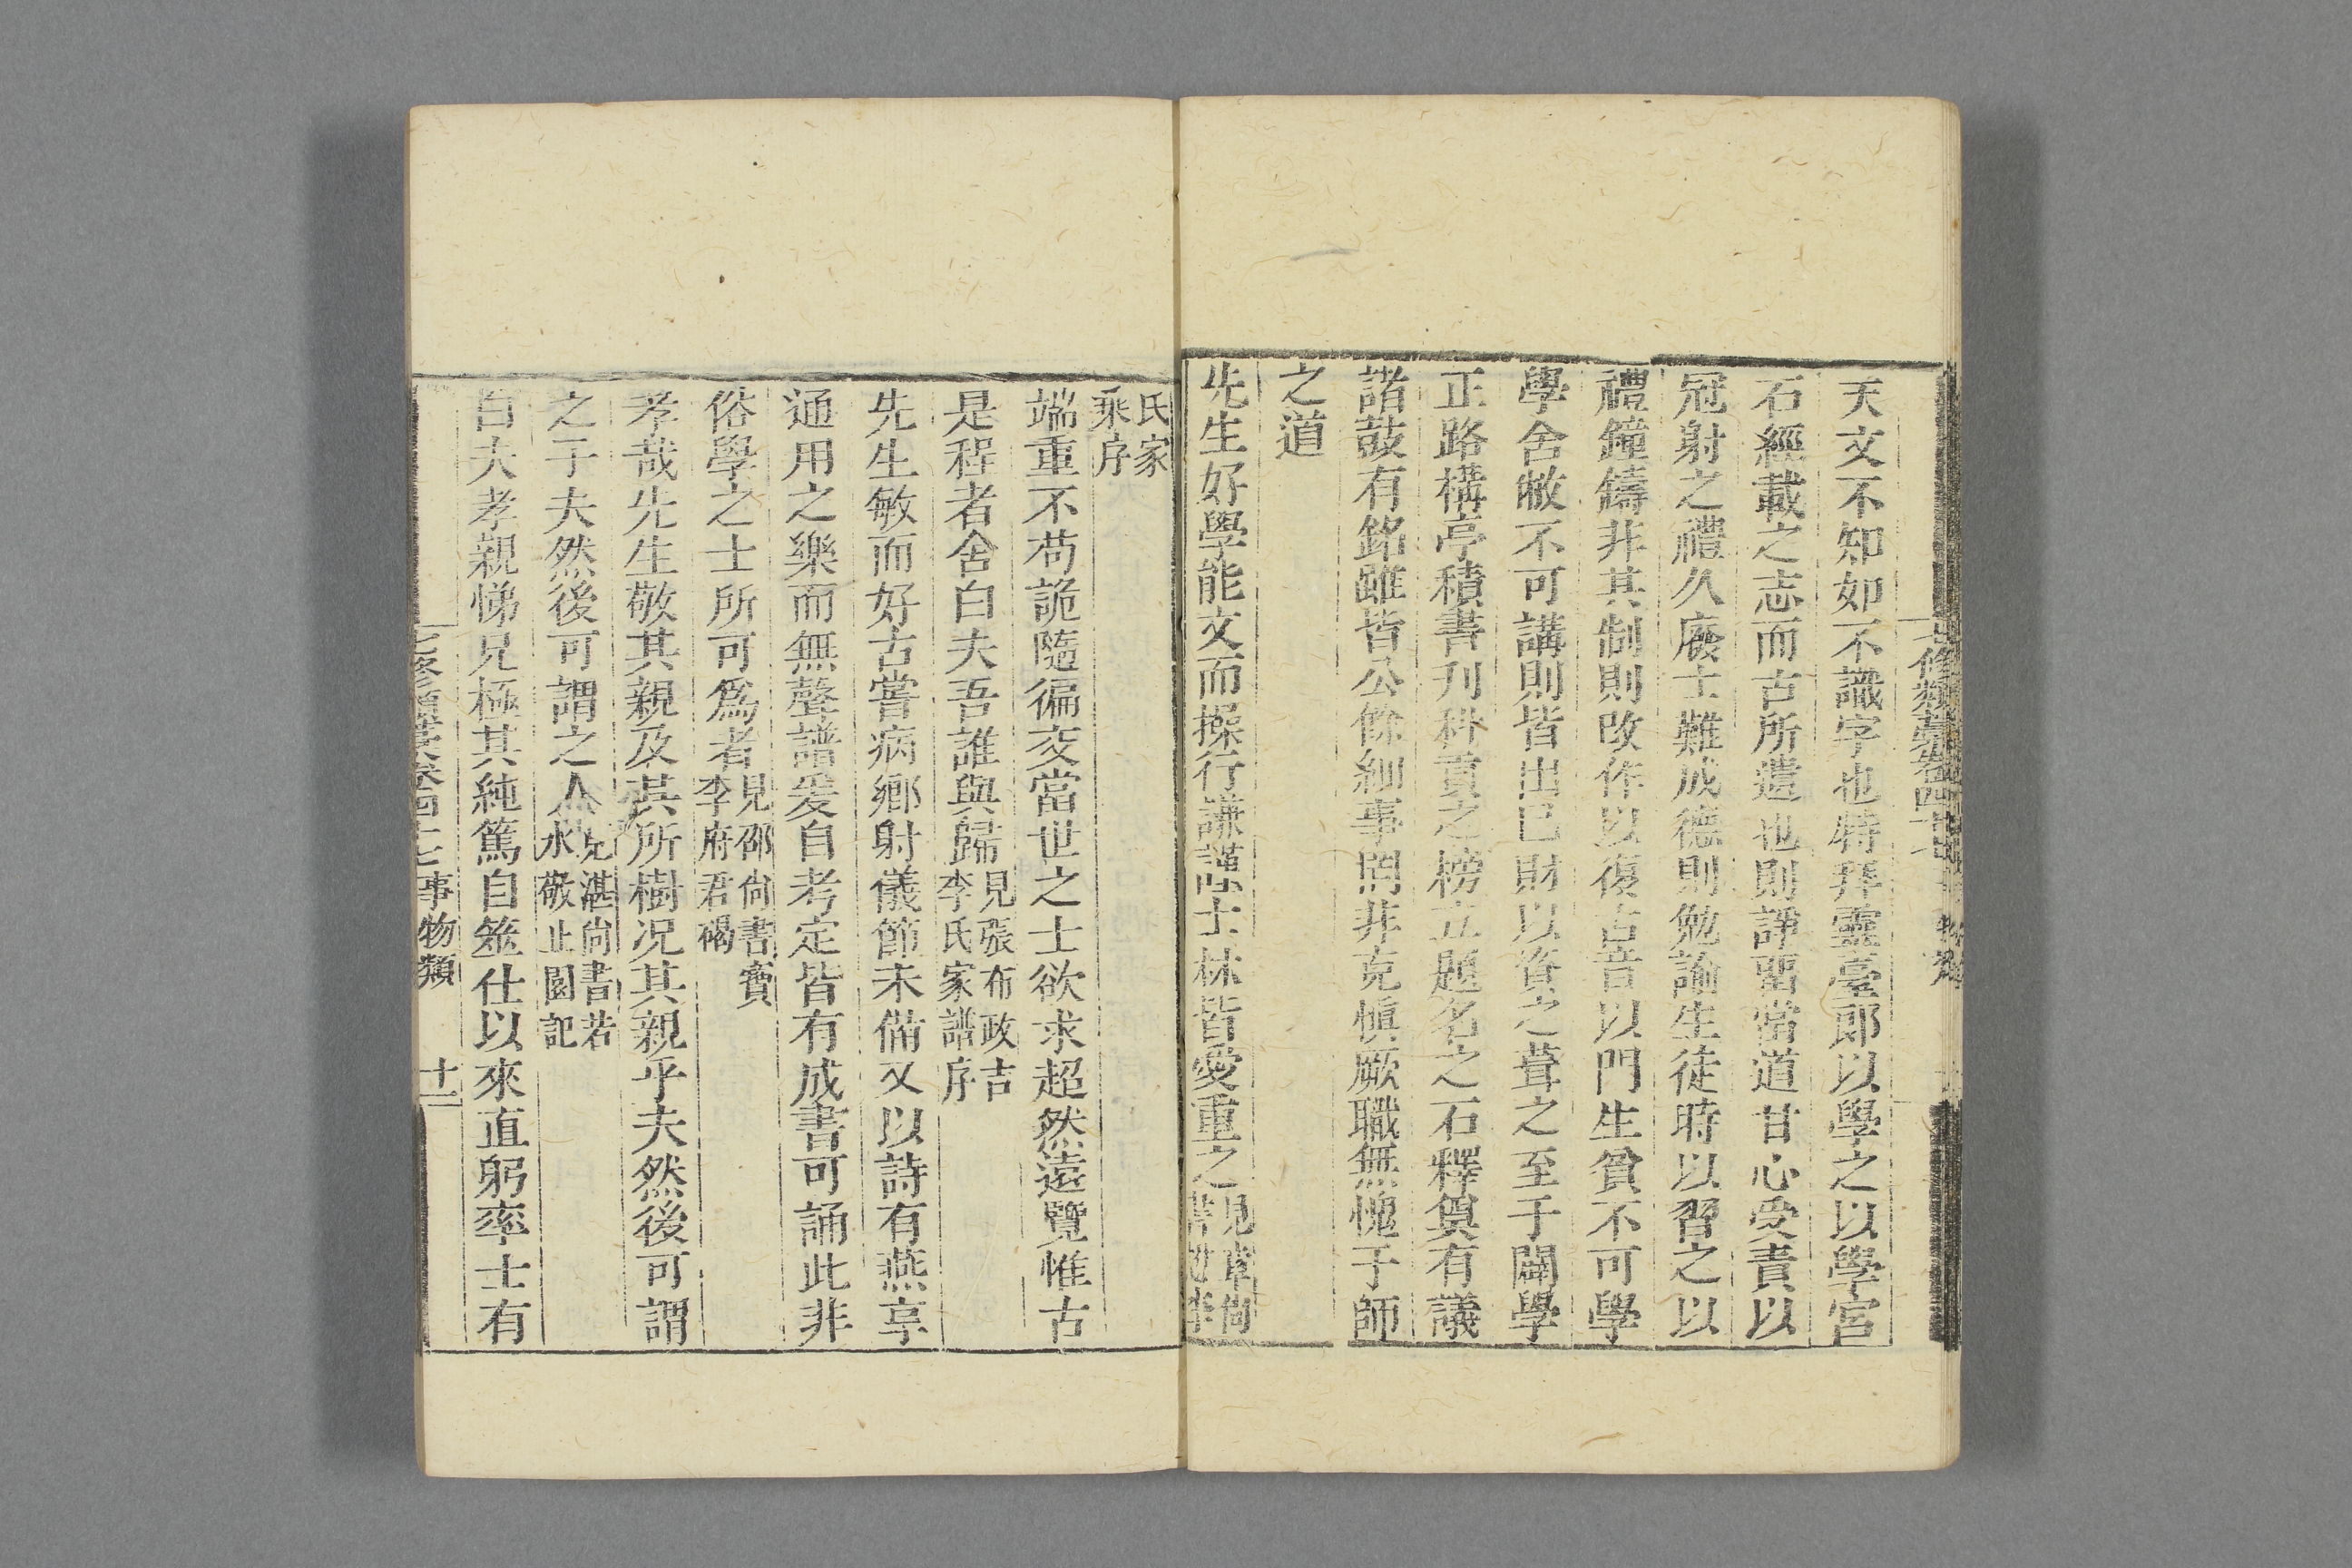 天文不知如不識字也特拜靈臺郎以學之以學宮
石經載之志而古所遺也則諍畱當道甘心受責以
冠射之禮久廢士難成德則勉諭生徒時以習之以
禮鐘鑄非其制則改作以復古音以門生貧不可學
學舍敝不可講則皆出已財以資之葺之至于闢學
正路構亭積書刊科貢之榜立題名之石釋奠有議
諸鼓有銘雖皆公餘細事罔非克愼厥職無愧于師
之道
先生好學能文而操行謙謹士林皆愛重之見章尚
氏家
乘序
端重不苟詭隨徧交當世之士欲求超然遠覽惟古
是程者舍白夫吾誰與歸見張布政吉
李氏家譜序
先生敏而好古嘗病鄉射儀節未備又以詩有燕享
通用之樂而無聲譜爰自考定皆有成書可誦此非
俗學之士所可爲者見邵尙書寶
李府君碣
孝哉先生敬其親及其所樹况其親乎夫然後可謂
之子夫然後可謂之人見湛尙書若
水敬止園記
白夫孝親悌兄極其純篤自筮仕以來直躬率士有
七修類藁卷四十七 事物類 十一